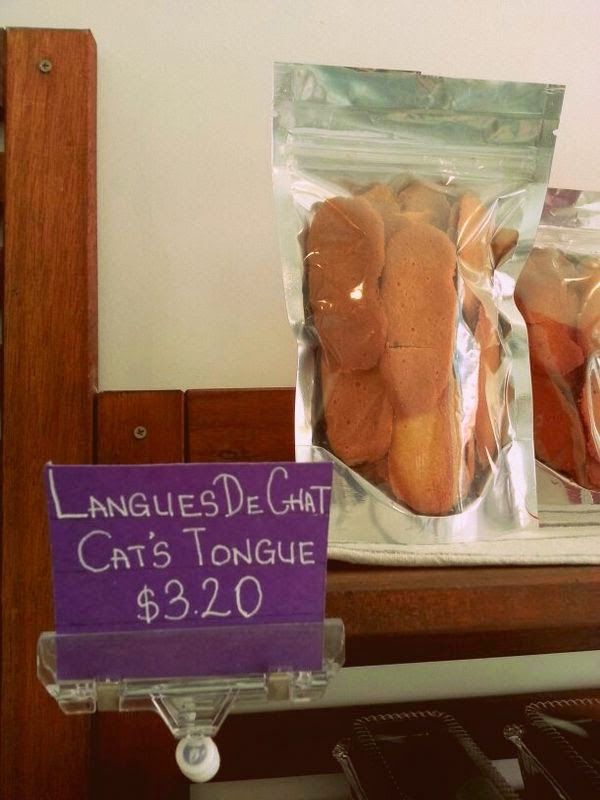 LANGUES DE CHAT
CAT'S TONGUE
$3.20